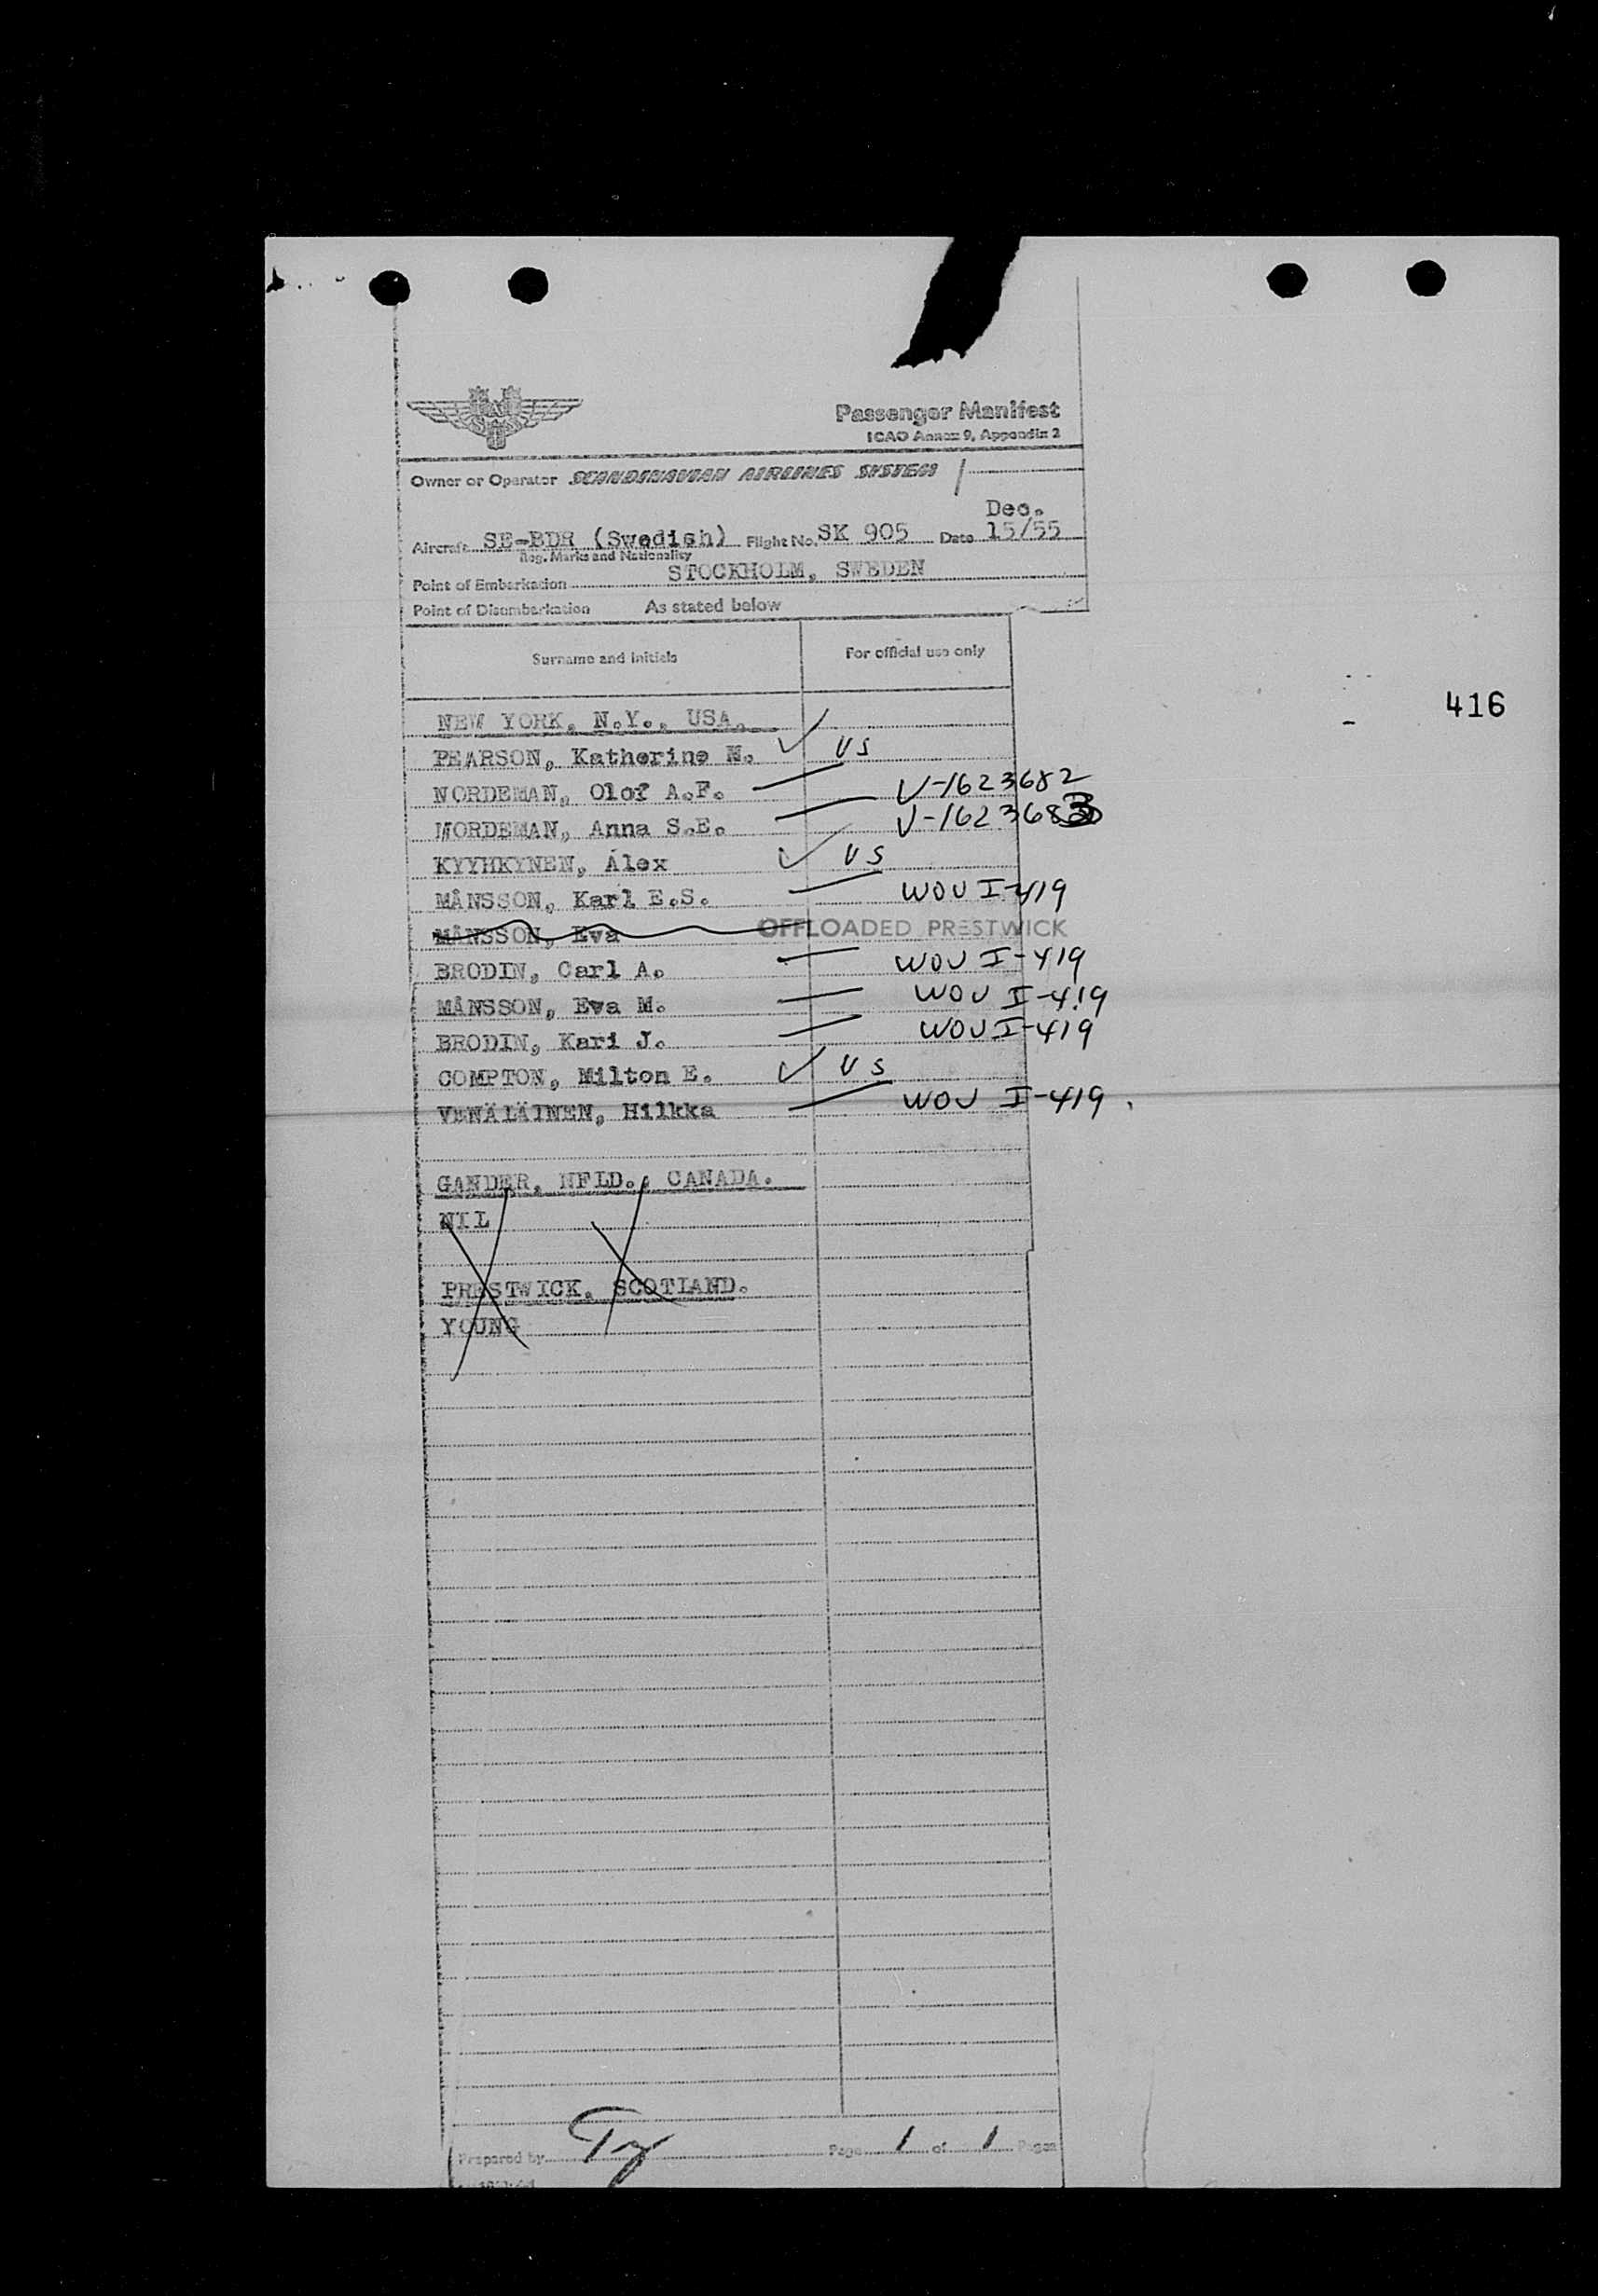 Passenger Manifest
ICAO Annex 9, Appendix 2
Owner or Operator SCANDINAVIAN AIRLINES SYSTEM
Dec.
Aircraft SE-BDR (Swedish) Flight No. SK 905 Date 15/55
Reg. Marks and Nationality
Point of Embarkation STOCKHOLM, SWEDEN
Point of Disembarkation As stated below
Surname and initials For official use only
416
NEW YORK, N.Y., USA.
PEARSON, Katherine N. US
NORDEMAN, Olof A.F. V-1623682
NORDEMAN, Anna S.E. V-1623683
KYYHKYNEN, Alex US
MÅNSSON, Karl E.S. WOV I-419
MÅNSSON, Eva OFFLOADED PRESTWICK
BRODIN, Carl A. WOV I-419
MÅNSSON, Eva M. WOV I-419
BRODIN, Kari J. WOV I-419
COMPTON, Milton E. US
VENÄLÄINEN, Hilkka WOV I-419
GANDER, NFLD., CANADA.
NIL
PRESTWICK, SCOTLAND.
YOUNG
Prepared by Page 1 of 1 Pages